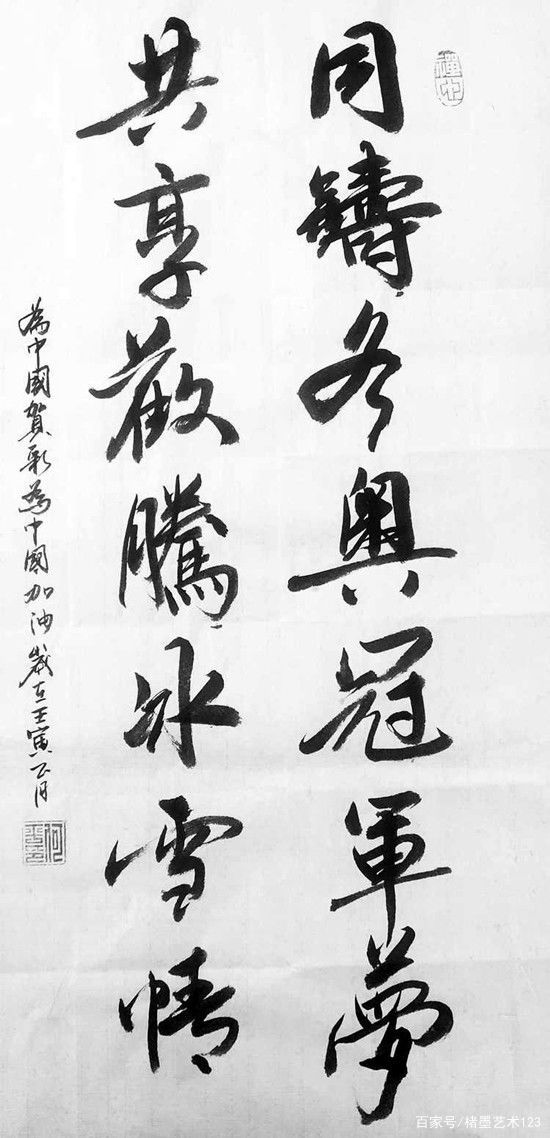 同鑄冬奧冠軍夢
共享歡騰冰雪情
為中國賀彩為中國加油歲在壬寅正月
百家号/楮墨艺术123